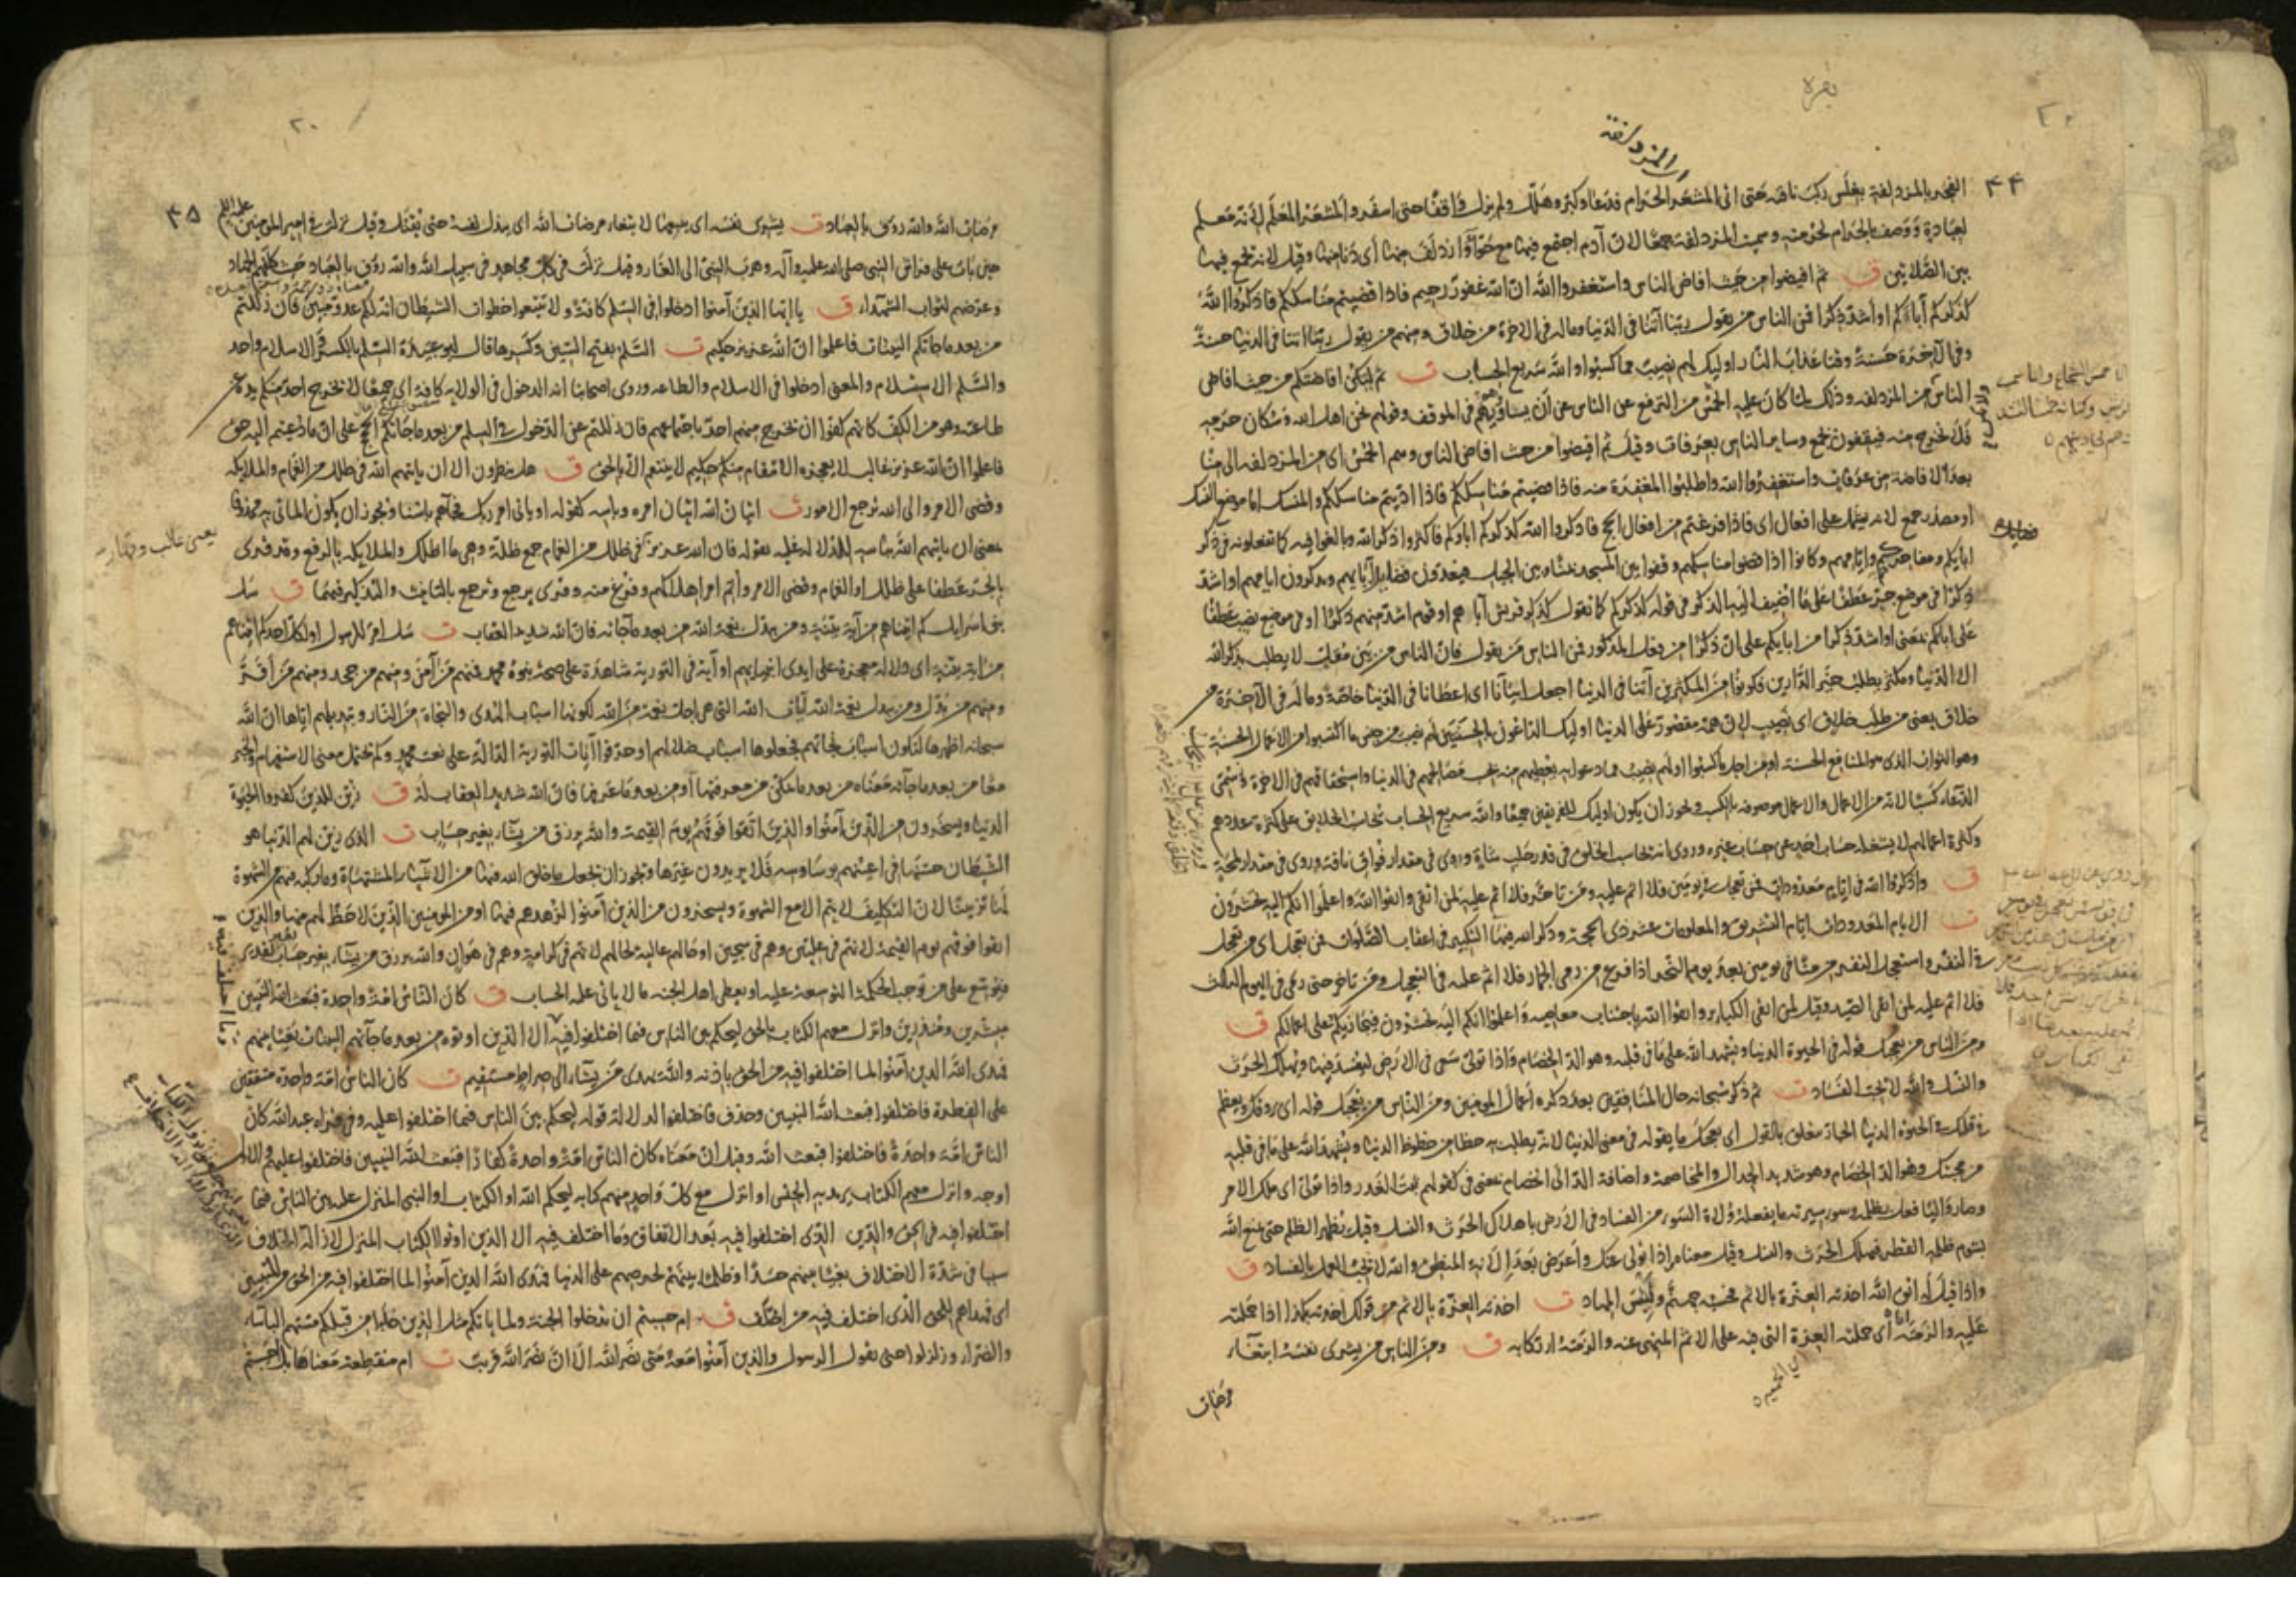 بقره
المزدلفة
۴۴
الفجر بالمزدلفة بغلس ركب ناقته حتى اتى المشعر الحرام فدعا وكبر وهلل ولم يزل واقفا حتى اسفر والمشعر المعلم لانه معلم
لعبادة ووصف بالحرام لحرمته وسميت المزدلفة جمعا لان آدم اجتمع فيها مع حوّا وازدلف منها أى دنا منها وقيل لانه يجمع فيها
بين الصلاتين ق ثم افيضوا من حيث افاض الناس واستغفروا الله ان الله غفور رحيم فاذا قضيتم مناسككم فاذكروا الله
كذكركم آباءكم او أشد ذكرا فمن الناس من يقول ربنا آتنا فى الدنيا وماله فى الاخرة من خلاق ومنهم من يقول ربنا اتنا فى الدنيا حسنة
وفى الآخرة حسنة وقنا عذاب النار اوليك لهم نصيب مما كسبوا والله سريع الحساب ت ثم لتكن افاضتكم من حيث افاض
الناس من المزدلفه وذلك لما كان عليه الحمس من الترفع عن الناس عن أن يساووهم فى الموقف وقولهم نحن اهل الله وسكان حرمه
فلا نخرج منه فيقفون بجمع وساير الناس بعرفات وقيل ثم افيضوا من حيث افاض الناس وهم الحمس اى من المزدلفه الى منا
بعد الافاضة من عرفات واستغفروا الله واطلبوا المغفرة منه فاذا قضيتم مناسككم فاذا اديتم مناسككم والمنسك اما موضع النسك
او مصدر جمع لانه يشتمل على افعال اى فاذا فرغتم من افعال الحج فاذكروا الله كذكركم اباءكم فاكثروا ذكر الله وبالغوا فيه كما تفعلونه فى ذكر
ابايكم ومفاخرهم وايامهم وكانوا اذا قضوا مناسكهم وقفوا بين المسجد بمنا وبين الجبل فيعدون فضايل آبايهم ويذكرون ايامهم او اشد
ذكرا فى موضع جر عطف على ما اضيف اليه الذكر فى قوله كذكركم كما تقول كذكر قريش آباءهم او قوم اشد منهم ذكرا او فى موضع نصب عطف
على اباءكم بمعنى او اشد ذكرا من ابايكم على ان ذكرا من فعل المذكور فمن الناس من يقول فان الناس من بين مقل لا يطلب بذكر الله
الا الدنيا ومكثر يطلب خير الدارين فكونوا من المكثرين آتنا فى الدنيا اجعل ايتآنا اى اعطانا فى الدنيا خاصة وماله فى الآخرة من
خلاق يعنى من طلب خلاق اى نصيب لان همه مقصور على الدنيا اوليك الداعون بالحسنتين لهم نصيب من جنس ما اكتسبوا من الاعمال الحسنة
وهو الثواب الذى هو المنافع الحسنة او من اجل ما كسبوا او لهم نصيب مما دعوا به يعطيهم منه بحسب مصالحهم فى الدنيا واستحقاقهم فى الاخرة وسمى
الدعاء كسبا لانه من الاعمال والاعمال موصوفه بالكسب ويجوز ان يكون اوليك للفريقين جميعا والله سريع الحساب يحاسب الخلايق على كثرة عددهم
وكثرة اعمالهم لا يشغله حساب احد عن حساب غيره وروى انه يحاسب الخلق فى قدر حلب شاة وروى فى مقدار فواق ناقة وروى فى مقدار لمحة
ق واذكروا الله فى ايام معدودات فمن تعجل فى يومين فلا اثم عليه ومن تاخر فلا اثم عليه لمن اتقى واتقوا الله واعلموا انكم اليه تحشرون
ت الايام المعدودات ايام التشريق والمعلومات عشر ذى الحجة وذكر الله فيها التكبير فى اعقاب الصلوات فمن تعجل اى من تعجل
فى النفر واستعجل النفر من منا فى يومين بعد يوم النحر اذا فرغ من رمى الجمار فلا اثم عليه فى التعجيل ومن تاخر حتى رمى فى اليوم الثالث
فلا اثم عليه لمن اتقى الصيد وقيل لمن اتقى الكباير واتقوا الله باجتناب معاصيه واعلموا انكم اليه تحشرون فيجازيكم على اعمالكم ق
ومن الناس من يعجبك قوله فى الحيوة الدنيا ويشهد الله على ما فى قلبه وهو الد الخصام واذا تولى سعى فى الارض ليفسد فيها ويهلك الحرث
والنسل والله لا يحب الفساد ت ثم ذكر سبحانه حال المنافقين بعد ذكره أحوال المومنين ومن الناس من يعجبك قوله اى يروقك ويعظم
فى قلبك فى الحيوة الدنيا الجار متعلق بالقول اى يعجبك ما يقوله فى معنى الدنيا لانه يطلب به حظا من حظوظ الدنيا ويشهد الله على ما فى قلبه
من محبتك وهو الد الخصام وهو شديد الجدال والمخاصمة واضافة الالد الى الخصام بمعنى فى كقولهم ثبت الغدر واذا تولى اى ملك الامر
وصار واليا فعل بظلمه وسوء سيرته ما يفعله ولاة السوء من الفساد فى الارض باهلاك الحرث والنسل وقيل يظهر الظلم حتى يمنع الله
بشوم ظلمه القطر فيهلك الحرث والنسل وقيل معناه اذا تولى عنك واعرض بعد الانة المنطق والله لا يحب العمل بالفساد ق
واذا قيل له اتق الله اخذته العزة بالاثم فحسبه جهنم ولبئس المهاد ت اخذته العزة بالاثم من قولك اخذته بكذا اذا حملته
عليه والزمته أى حملته العزة التى فيه على الاثم المنهى عنه والزمته ارتكابه ق ومن الناس من يشرى نفسه ابتغآء
مرضات
۴۵
مرضات الله والله روف بالعباد ت يشرى نفسه اى يبيعها لابتغاء مرضات الله اى يبذل نفسه حتى يقتل وقيل نزلت فى امير المومنين عليه السلم
حين بات على فراش النبى صلى الله عليه وآله وهرب النبى الى الغار وقيل نزلت فى كل مجاهد فى سبيل الله والله روف بالعباد حيث كلفهم الجهاد
وعرضهم لثواب الشهداء ق يا ايها الذين آمنوا ادخلوا فى السلم كافة ولا تتبعوا خطوات الشيطان انه لكم عدو مبين فان زللتم
من بعد ما جاءتكم البينات فاعلموا ان الله عزيز حكيم ت السلم بفتح السين وكسرها قال ابو عبيدة السلم بالكسر والاسلام واحد
والسلم الاستسلام والمعنى ادخلوا فى الاسلام والطاعه وروى اصحابنا انه الدخول فى الولايه كافة اى جميعا لا يخرج احد منكم يده عن
طاعته وهو من الكف كانهم كفوا ان يخرج منهم احد باجتماعهم فان زللتم عن الدخول فى السلم من بعد ما جاءتكم الحجج على ان ما دعيتم اليه حق
فاعلموا ان الله عزيز غالب لا يعجزه الانتقام منكم حكيم لا ينتقم الا بالحق ق هل ينظرون الا ان ياتيهم الله فى ظلل من الغمام والملايكه
وقضى الامر والى الله ترجع الامور ت اتيان الله اتيان امره وباسه كقوله او ياتى امر ربك فجآءهم باسنا ويجوز ان يكون الماتى به محذوفا
يعنى غالب وقهار
بمعنى ان ياتيهم الله بباسه للدلالة عليه بقوله فان الله عزيز فى ظلل من الغمام جمع ظلة وهى ما اظلك والملايكه بالرفع وقد قرى
بالجر عطفا على ظلل او الغمام وقضى الامر وأتم امر اهلاكهم وفرغ منه وقرى يرجع وترجع بالتانيث والتذكير فيهما ق سل
بنى اسرايل كم اتيناهم من آية بينة ومن يبدل نعمة الله من بعد ما جاءته فان الله شديد العقاب ت سل امر للرسول او لكل احد كم اتيناهم
من اية بينة اى دلالة معجزة على ايدى انبيايهم او آية فى التورية شاهدة على صحة نبوة محمد فمنهم من آمن ومنهم من جحد ومنهم من أقر
ومنهم من بدل ومن يبدل نعمة الله آيات الله التى هى اجل نعمة من الله لكونها اسباب الهدى والنجاة من النار وتبديلهم اياها ان الله
سبحانه اظهرها لتكون اسباب نجاتهم فجعلوها اسباب ضلالهم او حرفوا آيات التورية الدالة على نعت محمد وكم تحتمل معنى الاستفهام والخبر
معا من بعد ما جآءته معناه من بعد ما تمكن من معرفتها او من بعد ما عرفها فان الله شديد العقاب له ق زين للذين كفروا الحيوة
الدنيا ويسخرون من الذين آمنوا والذين اتقوا فوقهم يوم القيمة والله يرزق من يشآء بغير حساب ت الذى زين لهم الدنيا هو
الشيطان حسنها فى اعينهم بوساوسه فلا يريدون غيرها ويجوز ان يجعل ما خلق الله فيها من الاشيآء المشتهاة وما ركبه فيهم من الشهوة
لها تزيينا لان التكليف لا يتم الا مع الشهوة ويسخرون من الذين آمنوا لزهدهم فيها او من المومنين الذين لا حظ لهم منها والذين
اتقوا فوقهم يوم القيمة لانهم فى عليين وهم فى سجين او حالهم عالية لحالهم لانهم فى كرامة وهم فى هوان والله يرزق من يشآء بغير حساب
ويوسع على من توجب الحكمة التوسعة عليه او يعطى اهل الجنه ما لا ياتى عليه الحساب ق كان الناس امة واحدة فبعث الله النبيين
مبشرين ومنذرين وانزل معهم الكتاب بالحق ليحكم بين الناس فيما اختلفوا فيه الا الذين اوتوه من بعد ما جآءتهم البينات بغيا بينهم
فهدى الله الذين آمنوا لما اختلفوا فيه من الحق باذنه والله يهدى من يشآء الى صراط مستقيم ت كان الناس امة واحدة متفقين
على الفطرة فاختلفوا فبعث الله النبيين وحذف فاختلفوا لدلالة قوله ليحكم بين الناس فيما اختلفوا عليه وفى قراءة عبد الله كان
الناس امة واحدة فاختلفوا فبعث الله وقيل ان معناه كان الناس امة واحدة كفارا فبعث الله النبيين فاختلفوا عليهم والاول
اوجه وانزل معهم الكتاب يريد به الجنس او انزل مع كل واحد منهم كتابه ليحكم الله او الكتاب او النبى المنزل عليه بين الناس فيما
اختلفوا فيه فى الحق والدين الذى اختلفوا فيه بعد الاتفاق وما اختلف فيه الا الذين اوتوا الكتاب المنزل لازالة الاختلاف
سببا فى شدة الاختلاف بغيا بينهم حسدا وظلما بينهم لحرصهم على الدنيا فهدى الله الذين آمنوا لما اختلفوا فيه من الحق من للتبيين
اى فهداهم للحق الذى اختلف فيه من اختلف ق ام حسبتم ان تدخلوا الجنة ولما ياتكم مثل الذين خلوا من قبلكم مستهم الباسآء
والضرآء وزلزلوا حتى يقول الرسول والذين آمنوا معه متى نصر الله الا ان نصر الله قريب ت ام منقطعة معناها بل احسبتم